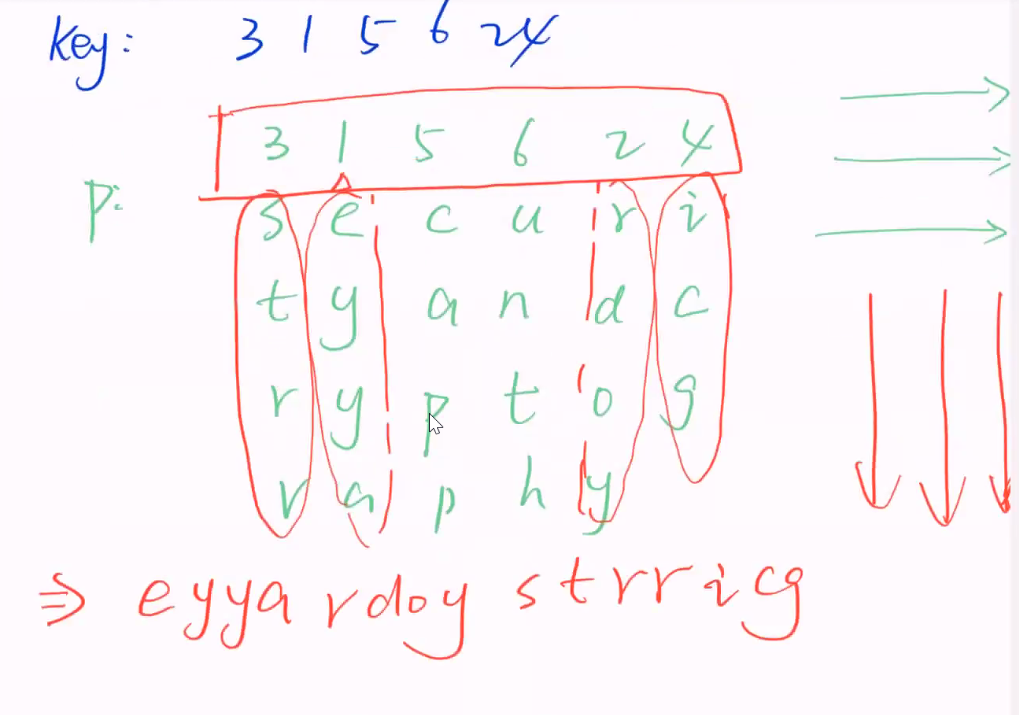 Key: 3 1 5 6 2 4
3 1 5 6 2 4
P: s e c u r i
t y a n d c
r y p t o g
r a p h y
⇒ eyya rdoy strricg